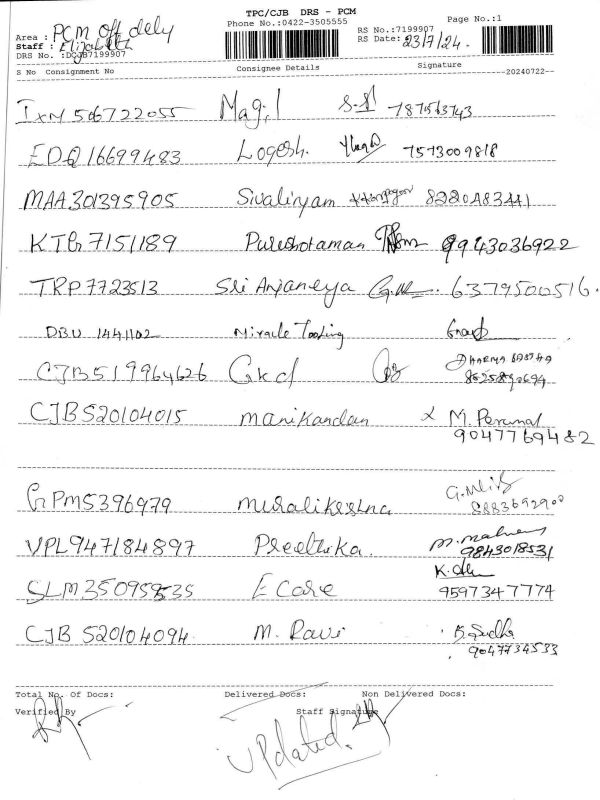 TPC/CJB DRS - PCM
Phone No.:0422-3505555
Page No.:1
Area : PCM off dely
Staff : Elizabeth
DRS No. :DCJB7199907
RS No.:7199907
RS Date: 23/7/24.
S No Consignment No Consignee Details Signature
20240722
IXM 506722055 Magil 787563743
EDQ16699483 Logesh. 7573009818
MAA301395905 Sivaliryam 8220483441
KTG7151189 Pureshotaman 9943036922
TRP7723513 Sri Anjaneya 6379500516.
DBU 1441102 Miracle Tooling
CJB519964626 Gkd
CJB520104015 manikandan M. Perumal
9047769482
GPM5396979 muralikrishna
8883692900
VPL947184897 Preethika.
9843018531
SLM350959535 E care
9597347774
CJB 520104094 M. Ravi
9047734533
Total No. Of Docs: Delivered Docs: Non Delivered Docs:
Verified By Staff Signature
updated.